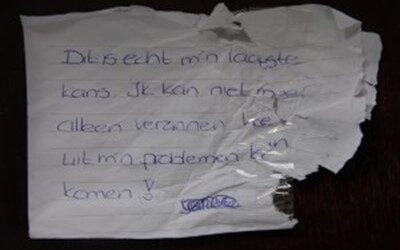 Dit is echt m'n laatste
kans. Ik kan niet meer
alleen verzinnen hoe
uit m'n problemen
komen!